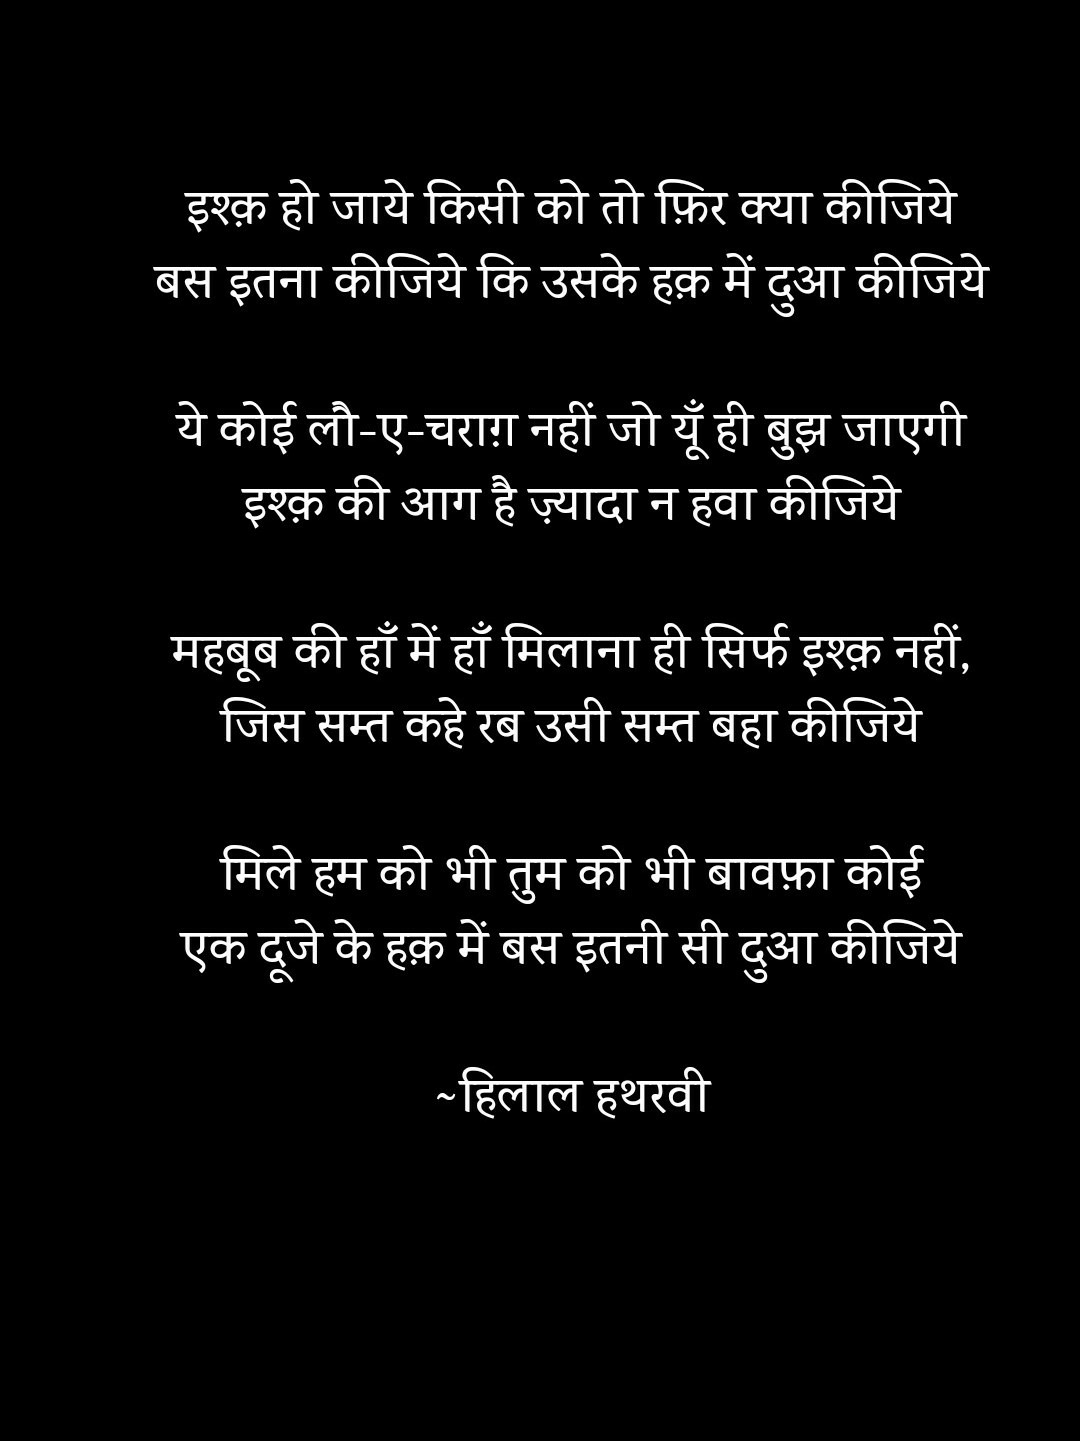 इश्क़ हो जाये किसी को तो फ़िर क्या कीजिये
बस इतना कीजिये कि उसके हक़ में दुआ कीजिये
ये कोई लौ-ए-चराग़ नहीं जो यूँ ही बुझ जाएगी
इश्क़ की आग है ज़्यादा न हवा कीजिये
महबूब की हाँ में हाँ मिलाना ही सिर्फ इश्क़ नहीं,
जिस सम्त कहे रब उसी सम्त बहा कीजिये
मिले हम को भी तुम को भी बावफ़ा कोई
एक दूजे के हक़ में बस इतनी सी दुआ कीजिये
~हिलाल हथरवी